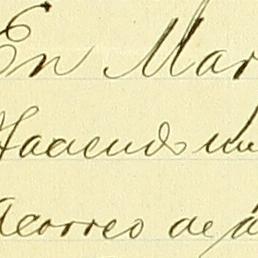 En Mar
Haciendo un
Acorreo de a